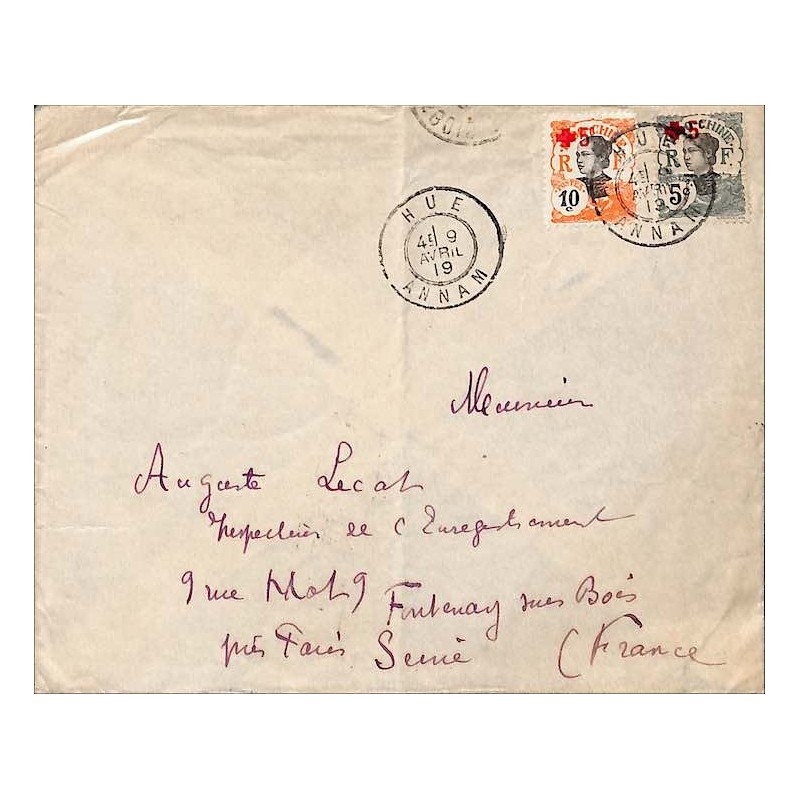 5 INDOCHINE
R F
10 c
5 INDOCHINE
R F
5
HUE
4E 9
AVRIL
19
ANNAM
HUE
4E 9
AVRIL
19
ANNAM
Monsieur
Auguste Lecat
Inspecteur de l'Enregistrement
9 rue Fontenay sous Bois
près Paris Seine (France